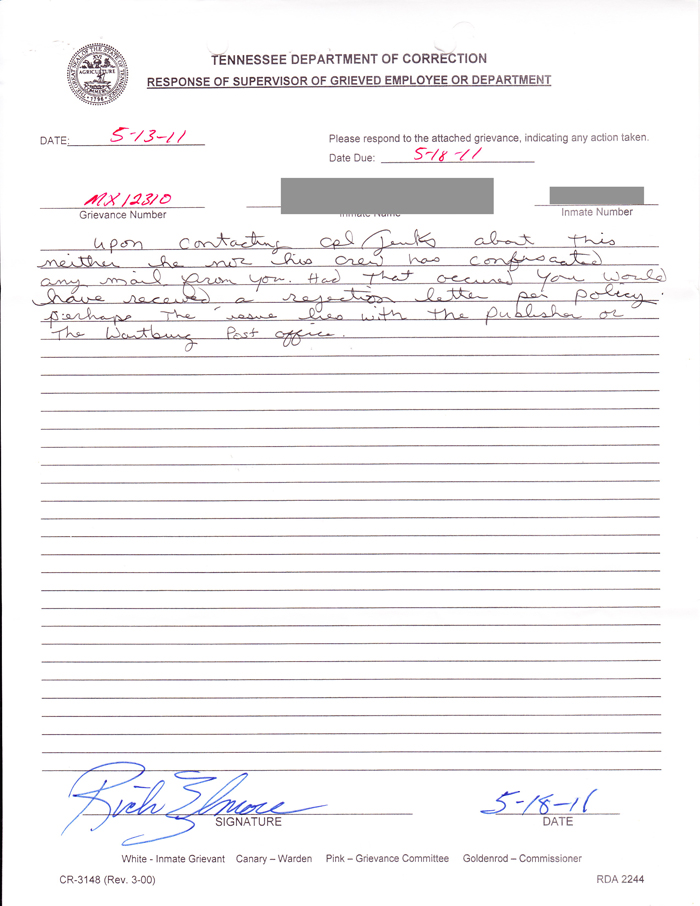 TENNESSEE DEPARTMENT OF CORRECTION
RESPONSE OF SUPERVISOR OF GRIEVED EMPLOYEE OR DEPARTMENT
AGRICULTURE
1796
DATE: 5-13-11
Please respond to the attached grievance, indicating any action taken.
Date Due: 5-18-11
MX12310
Grievance Number
Inmate Name
Inmate Number
upon contacting cpl Jenks about this
neither he nor his crew has confiscated
any mail from you. Had That occured you would
have received a rejection letter per policy.
perhaps The issue lies with the publisher or
The Wartburg Post office.
Rich Elmore
SIGNATURE
5-18-11
DATE
White - Inmate Grievant Canary – Warden Pink – Grievance Committee Goldenrod – Commissioner
CR-3148 (Rev. 3-00)
RDA 2244